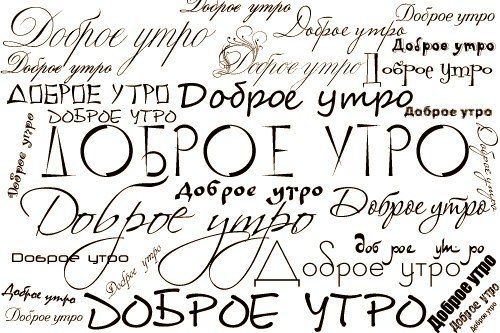 Доброе утро
Доброе утро
Доброе утро
Доброе утро
Доброе утро
Доброе утро
Доброе утро
Доброе утро
ДОБРОЕ УТРО
Доброе утро
Доброе утро
ДОБРОЕ УТРО
Доброе утро
ДОБРОЕ УТРО
Доброе утро
Доброе утро
Доброе утро
Доброе утро
Доброе утро
Доброе утро
Доброе утро
Доброе утро
Доброе утро
Доброе утро
ДОБРОЕ УТРО
Доброе утро
Доброе утро
Доброе утро
Доброе утро